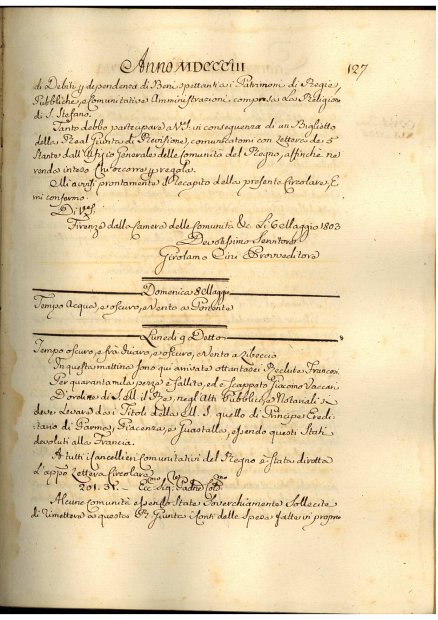 Anno MDCCCIII 127
di Debiti p dependenza di Beni spettanti a i Patrimoni di Regie,
Pubbliche, e Comunitative Amministrazioni, compresa La Religione
di S. Stefano.
Tanto debbo partecipare a in consequenza di un Biglietto
della Real Giunta di Revisione, comunicatomi con Lettera de 5
Stante dall'Ufizio Generale delle Comunità del Regno, affinchè ne
renda inteso Chi occorre p regola.
Mi avvisi prontamente il Recapito della presente Circolare, E
mi confermo
Di
Firenze dalla Camera delle Comunità &c. Li 6 Maggio 1803
Devotissimo Servitore
Girolamo Cini Provveditore
Domenica 8 Maggio
Tempo Acqua, e oscuro, e Vento a Ponente
Lunedi 9 Detto
Tempo oscuro, e frà chiaro, e oscuro, e Vento a Libeccio
In questa mattina sono qui arrivate ottantasei Reclute Francesi
Per quarantamila pezze è fallito, ed è scappato Giacomo Vaccari
D'ordine di S. M. il Re, negl'Atti Pubblici, e Notariali si
deve Levare da i Titoli della M. S. quello di Principe Eredi-
tario di Parma, Piacenza, e Guastalla, essendo questi Stati
devoluti alla Francia.
A tutti i Cancellieri Comunitativi del Regno è stata diretta
L'appo Lettera Circolare
Ecc. Sig. Padrone
Alcune Comunità essendo State Soverchiamente Sollecite
di rimettere a questa R. Giunta i Conti delle Spese fatte in propri